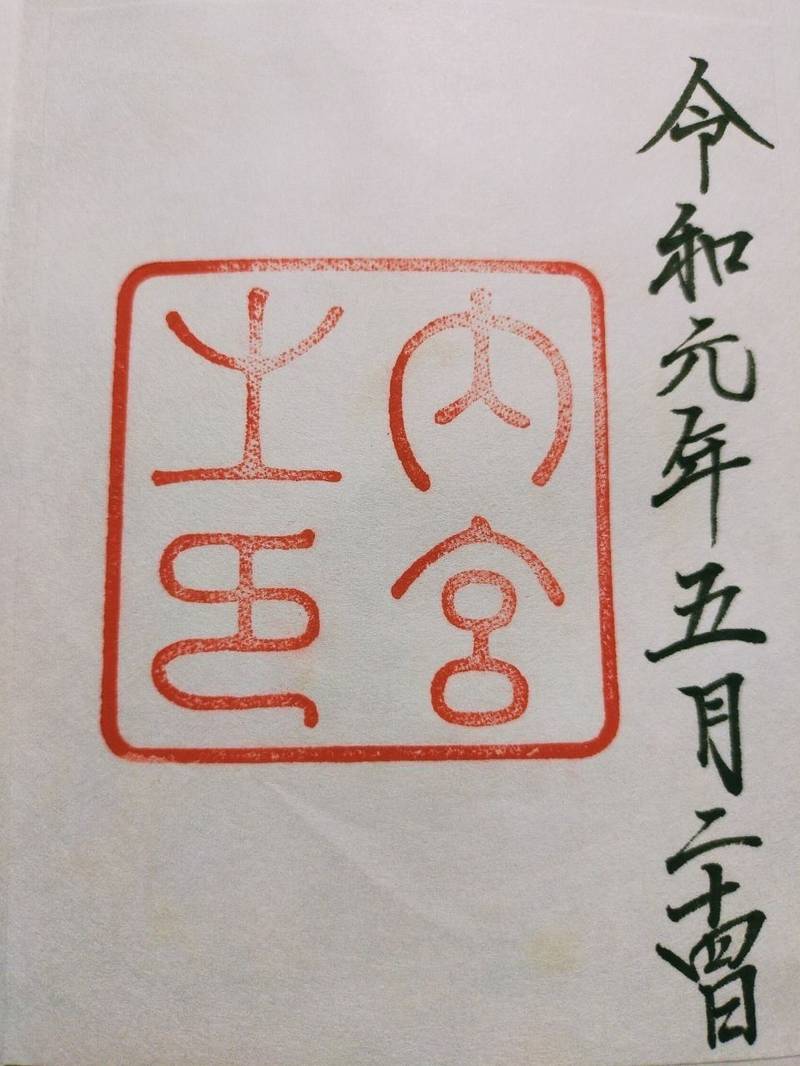 令和元年五月二十四日
内宮
之印